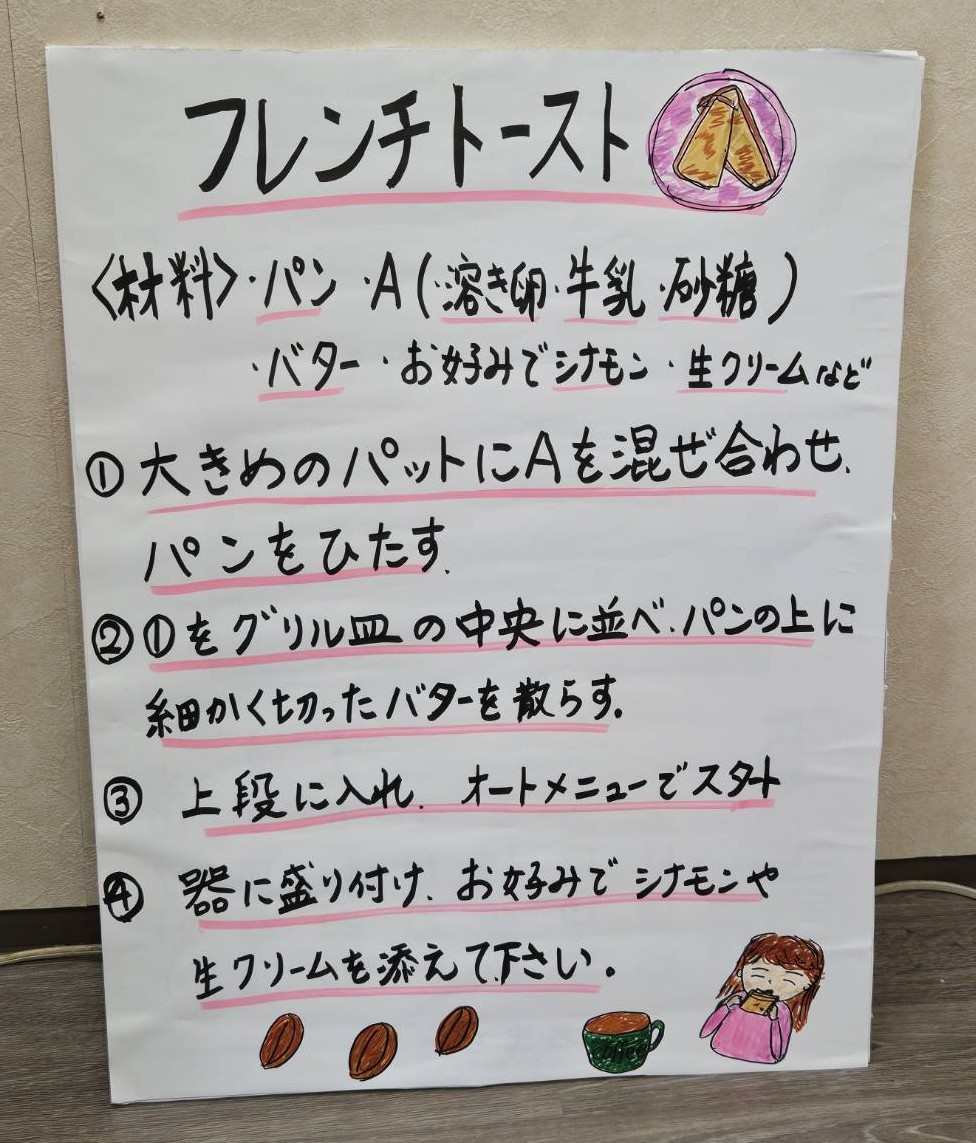 フレンチトースト
〈材料〉・パン ・A(・溶き卵・牛乳・砂糖)
・バター ・お好みでシナモン・生クリームなど
① 大きめのパットにAを混ぜ合わせ、
パンをひたす、
② ①をグリル皿の中央に並べ、パンの上に
細かく切ったバターを散らす。
③ 上段に入れ、オートメニューでスタート
④ 器に盛り付け、お好みでシナモンや
生クリームを添えて下さい。
coffee